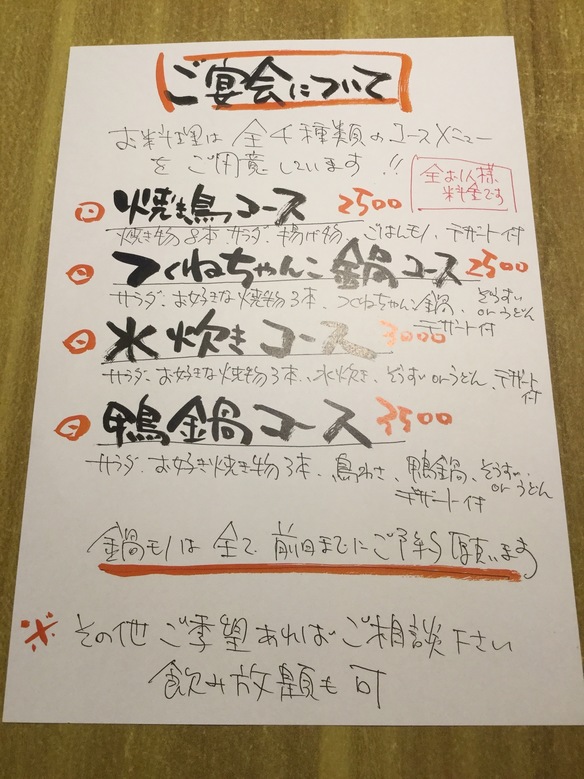 ご宴会について
お料理は全4種類のコースメニュー
をご用意しています!!
全お1人様
料金です
焼き鳥コース 2500
焼き物8本、サラダ、揚げ物、ごはんモノ、デザート付
つくねちゃんこ鍋コース 2500
サラダ、お好きな焼物3本、つくねちゃんこ鍋、ぞうすい
orうどん
デザート付
水炊きコース 3000
サラダ、お好きな焼物3本、水炊き、ぞうすいorうどん、デザート
付
鴨鍋コース 3500
サラダ、お好き焼き物3本、鳥わさ、鴨鍋、ぞうすい
orうどん
デザート付
鍋モノは全て前日までにご予約願います
※ その他ご希望あればご相談下さい
飲み放題も可